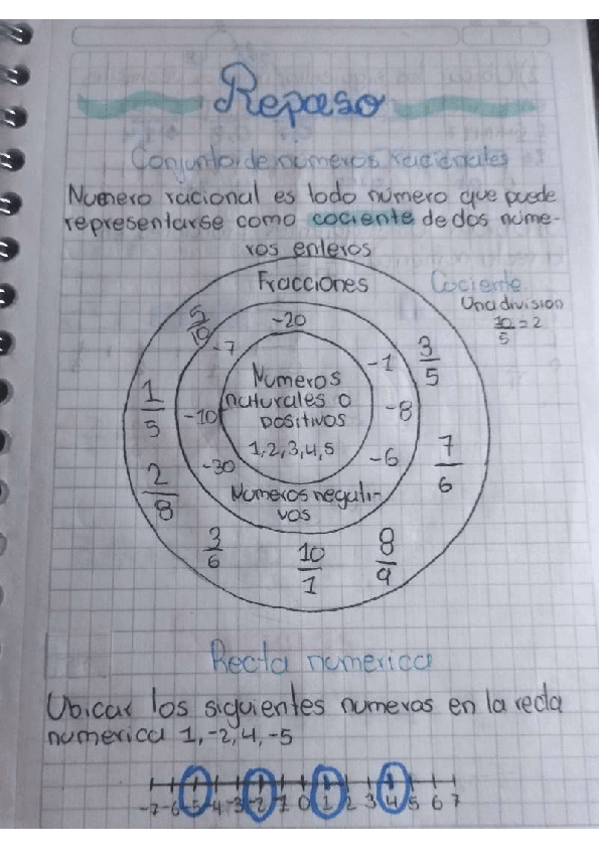 Repaso
Conjunto de numeros racionales
Numero racional es todo número que puede
representarse como cociente de dos nume-
ros enteros
Fracciones
Cociente
Una división
10/5 = 2
5/10
-20
-7
-1
3/5
Numeros
naturales o
positivos
1,2,3,4,5
1/5
-10
-8
-30
-6
7/6
2/8
Numeros negati-
vos
3/6
10/1
8/9
Recta numerica
Ubicar los siguientes numeros en la recta
numerica 1,-2,4,-5
-7 -6 -5 -4 -3 -2 -1 0 1 2 3 4 5 6 7